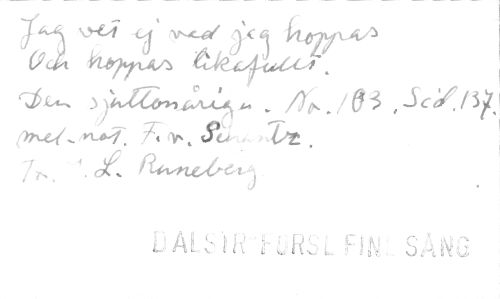 Jag vet ej vad jag hoppas
Och hoppas likafullt.
Den sjuttonåriga. No. 103. Sid. 137.
mel. not. F. v.
L. Runeberg
DALSTR FÖRSL FINL SÅNG